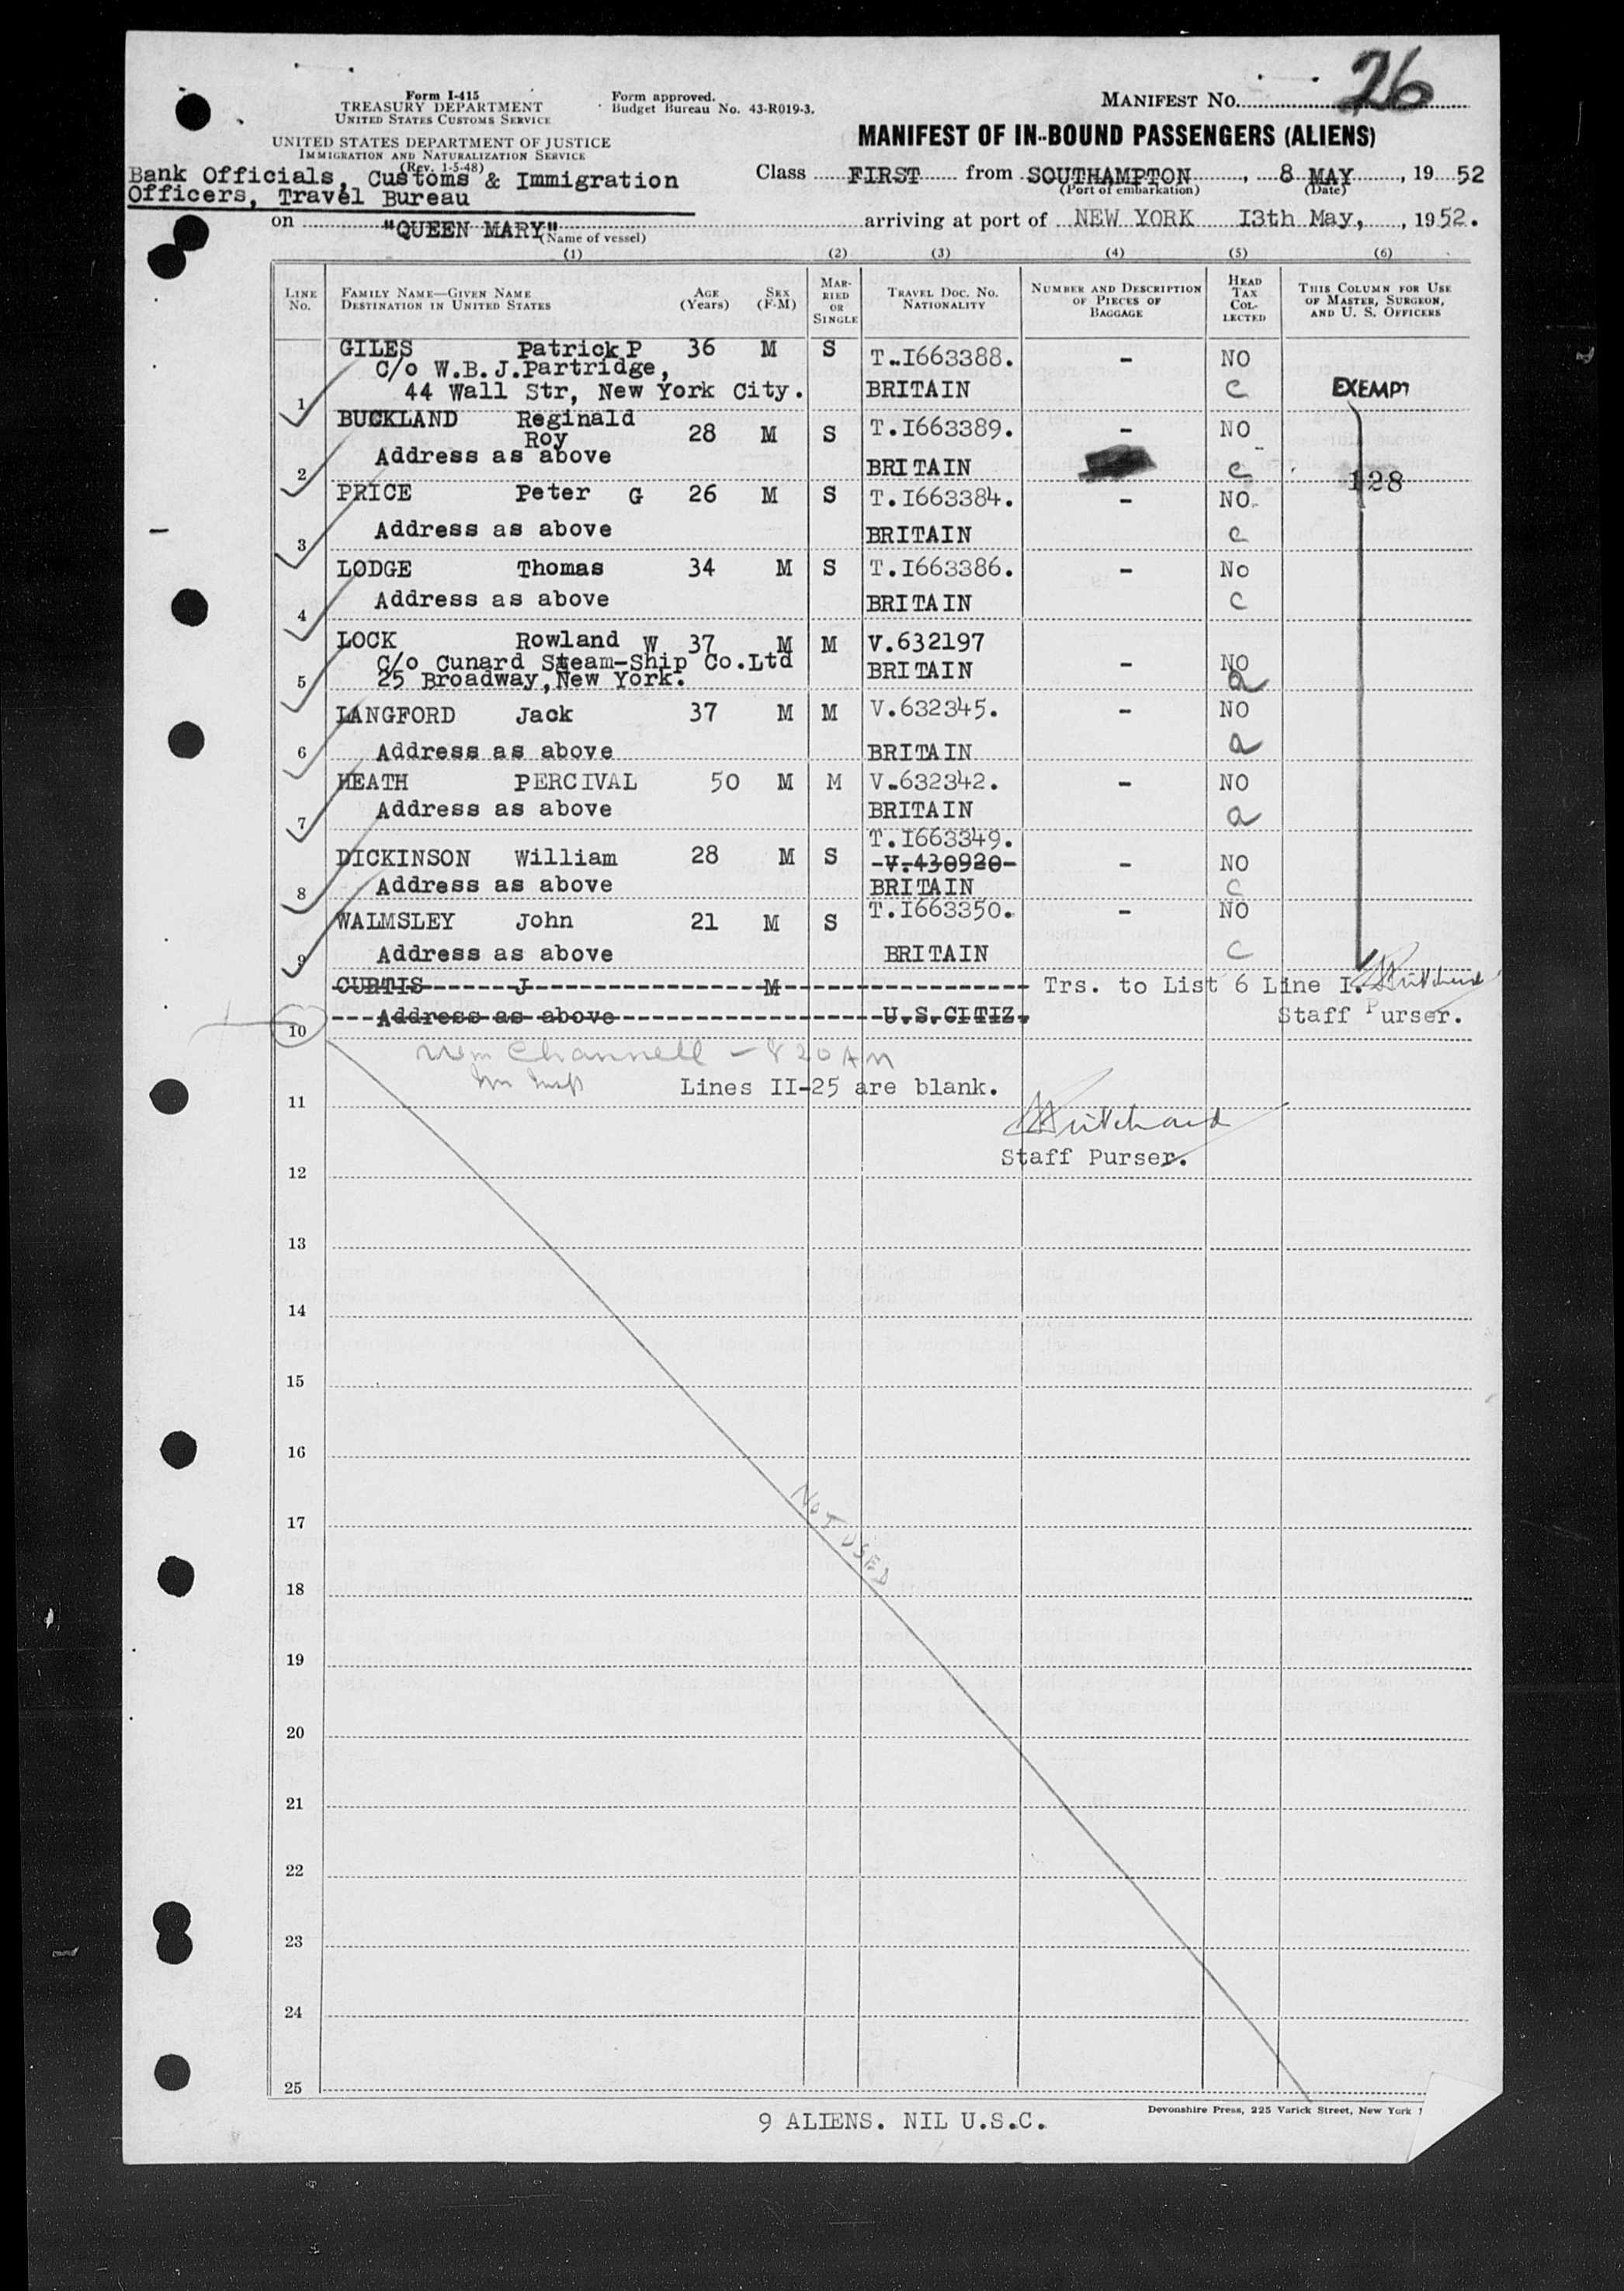 26
Form I-415
TREASURY DEPARTMENT
UNITED STATES CUSTOMS SERVICE
Form approved.
Budget Bureau No. 43-R019-3.
MANIFEST NO.
UNITED STATES DEPARTMENT OF JUSTICE
IMMIGRATION AND NATURALIZATION SERVICE
(Rev. 1-5-48)
MANIFEST OF IN-BOUND PASSENGERS (ALIENS)
Bank Officials, Customs & Immigration
Officers, Travel Bureau
Class FIRST from SOUTHAMPTON, 8 MAY, 1952
(Port of embarkation) (Date)
on "QUEEN MARY" arriving at port of NEW YORK I3th May, , 1952.
(Name of vessel)
(1) (2) (3) (4) (5) (6)
LINE NO. FAMILY NAME—GIVEN NAME DESTINATION IN UNITED STATES AGE (Years) SEX (F-M) MARRIED OR SINGLE TRAVEL DOC. NO. NATIONALITY NUMBER AND DESCRIPTION OF PIECES OF BAGGAGE HEAD TAX COLLECTED THIS COLUMN FOR USE OF MASTER, SURGEON, AND U. S. OFFICERS
GILES Patrick P 36 M S T.I663388. - NO
C/o W.B.J.Partridge,
1 44 Wall Str, New York City. BRITAIN C EXEMPT
BUCKLAND Reginald Roy 28 M S T.I663389. - NO
2 Address as above BRITAIN C 128
PRICE Peter G 26 M S T.I663384. - NO.
3 Address as above BRITAIN C
LODGE Thomas 34 M S T.I663386. - No
4 Address as above BRITAIN C
LOCK Rowland W 37 M M V.632197
C/o Cunard Steam-Ship Co.Ltd BRITAIN - NO
5 25 Broadway, New York. a
LANGFORD Jack 37 M M V.632345. - NO
6 Address as above BRITAIN a
HEATH PERCIVAL 50 M M V.632342. - NO
7 Address as above BRITAIN a
T.I663349.
DICKINSON William 28 M S -V.430920- - NO
8 Address as above BRITAIN C
WALMSLEY John 21 M S T.I663350. - NO
9 Address as above BRITAIN C
CURTIS J M Trs. to List 6 Line I. Pritchard
10 Address as above U.S.CITIZ. Staff Purser.
Wm Channell - 8 20 AM
Lines II-25 are blank.
11
Pritchard
Staff Purser.
12
13
14
15
16
17
NOT USED
18
19
20
21
22
23
24
25
Devonshire Press, 225 Varick Street, New York
9 ALIENS. NIL U.S.C.